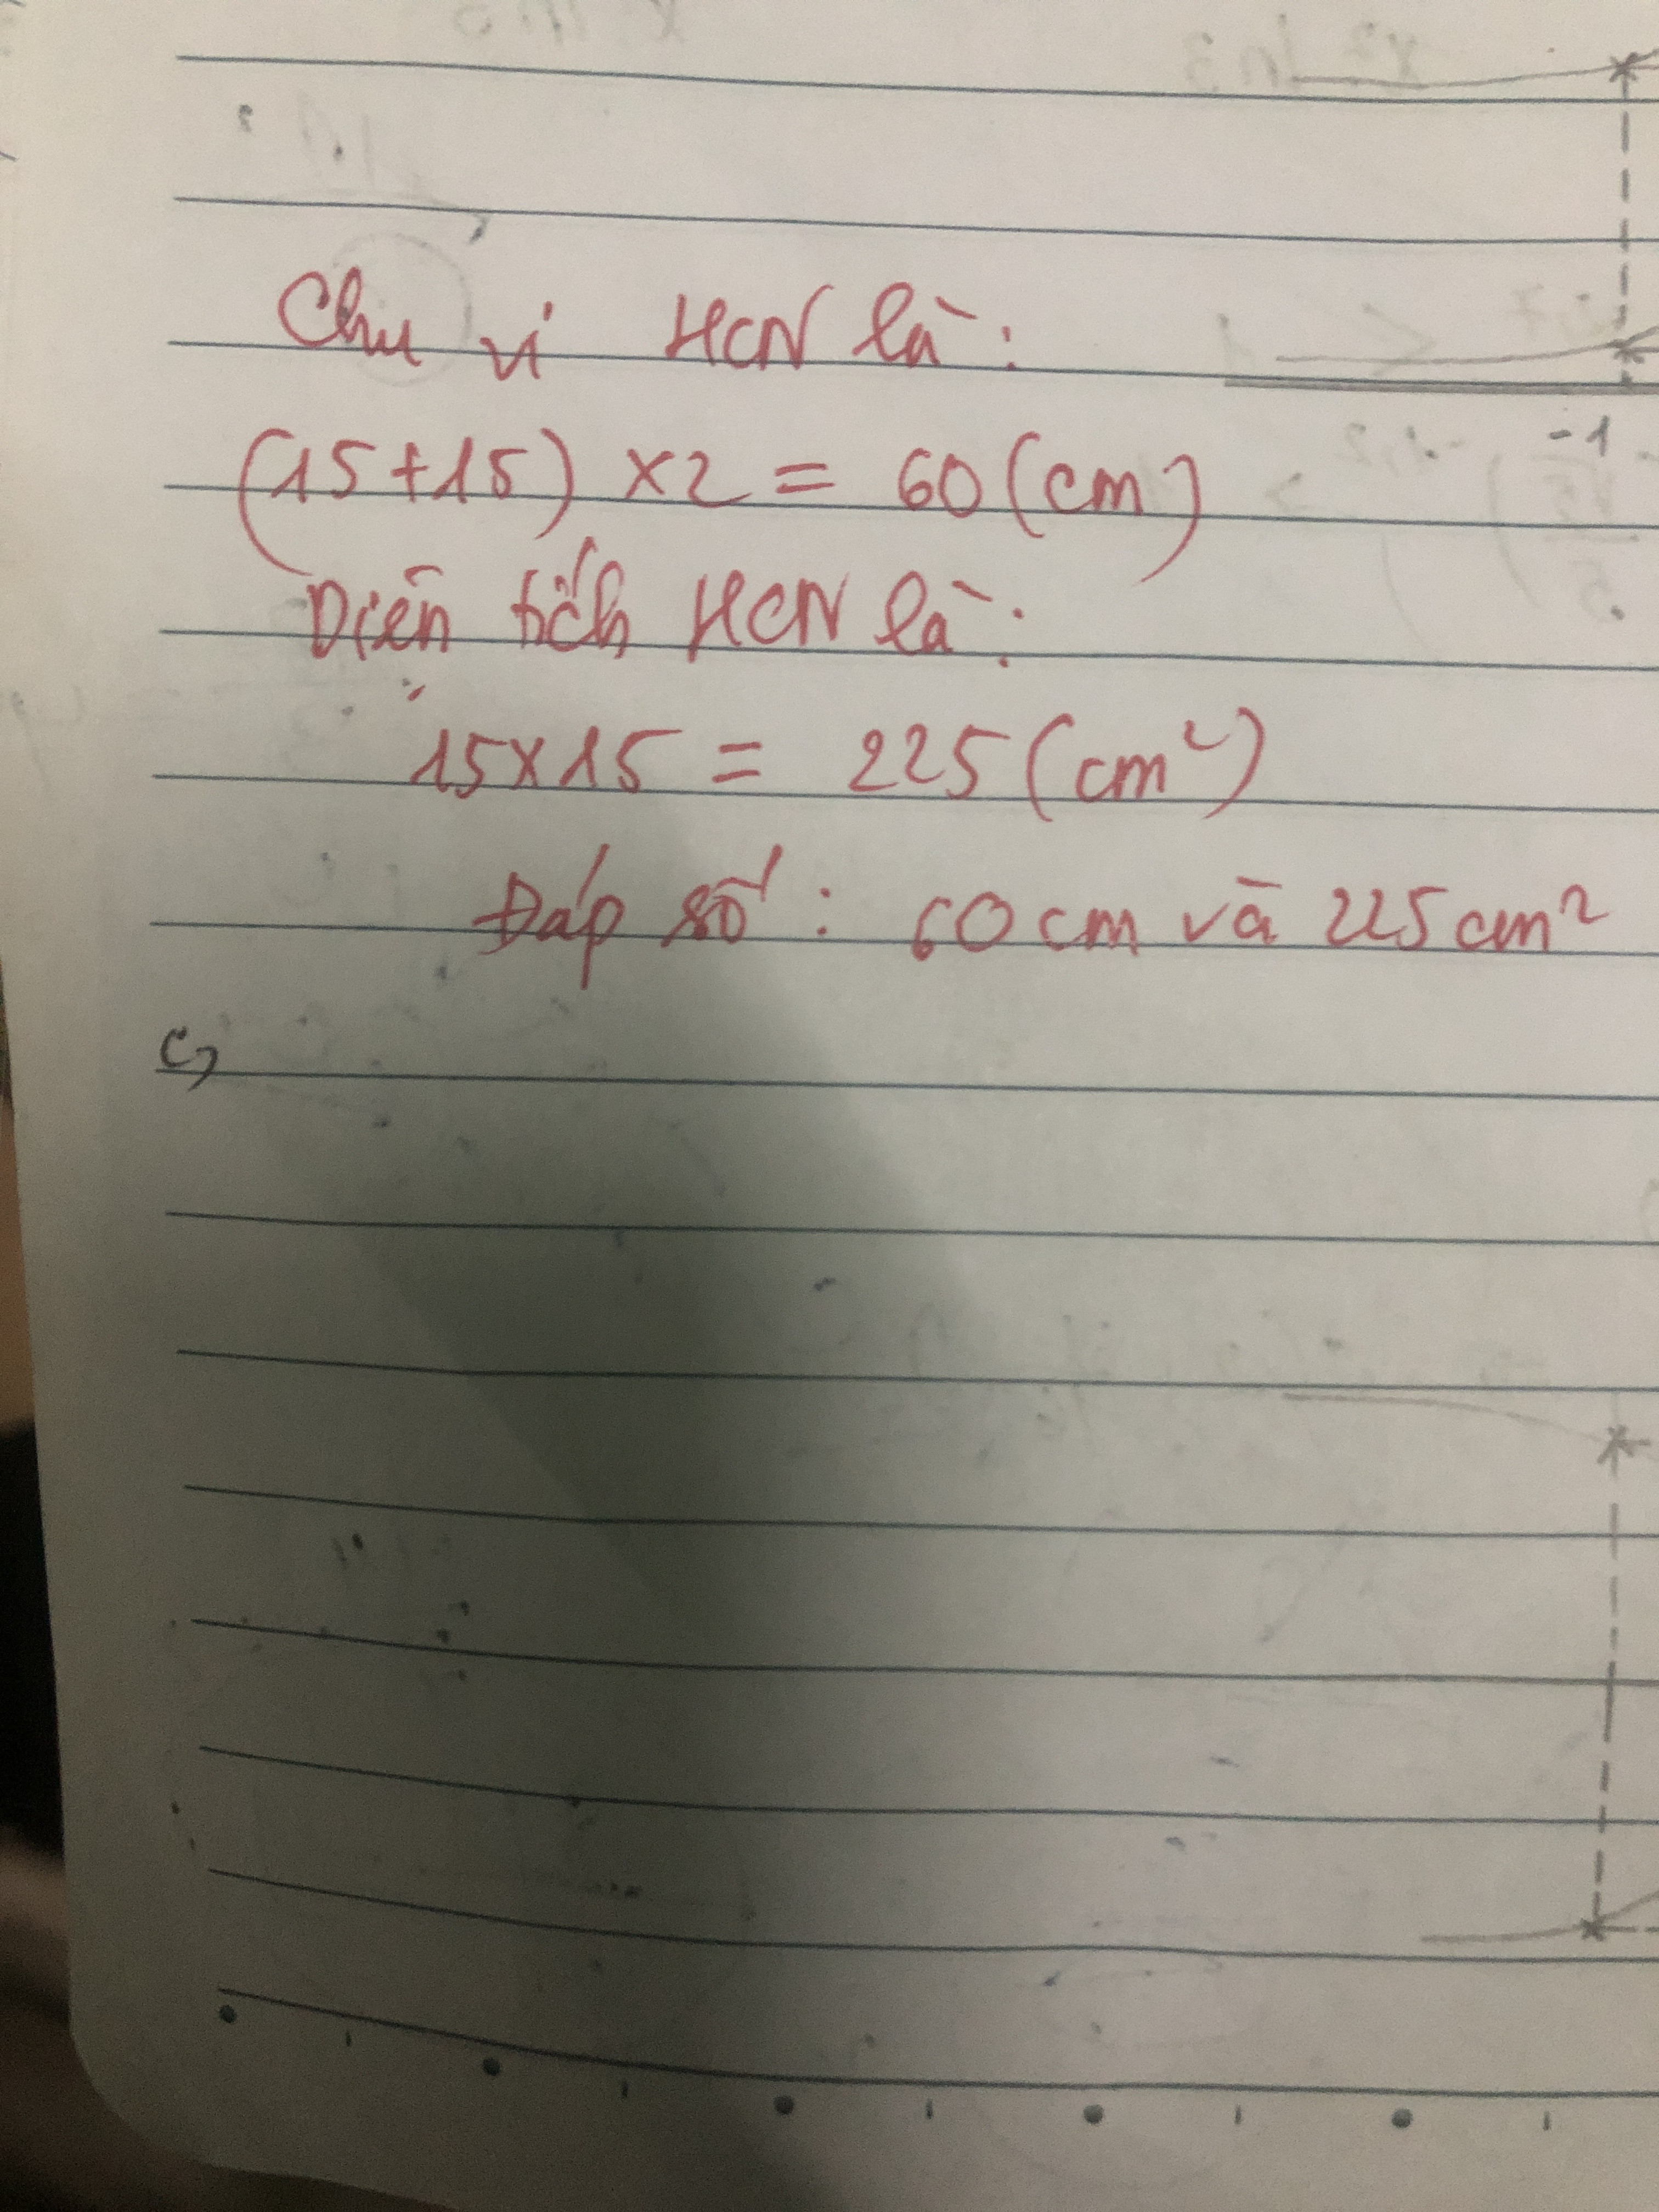 Chu vi HCN là:
(15+15) x2 = 60 (cm)
Diện tích HCN là:
15x15 = 225 (cm²)
Đáp số: 60 cm và 225 cm²
c,
-1